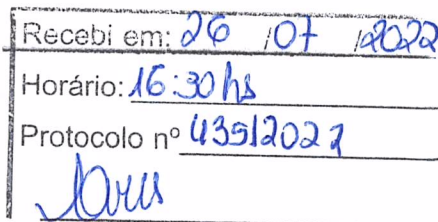 Recebi em: 26 /07 /2022
Horário: 16:30hs
Protocolo nº 435/2022